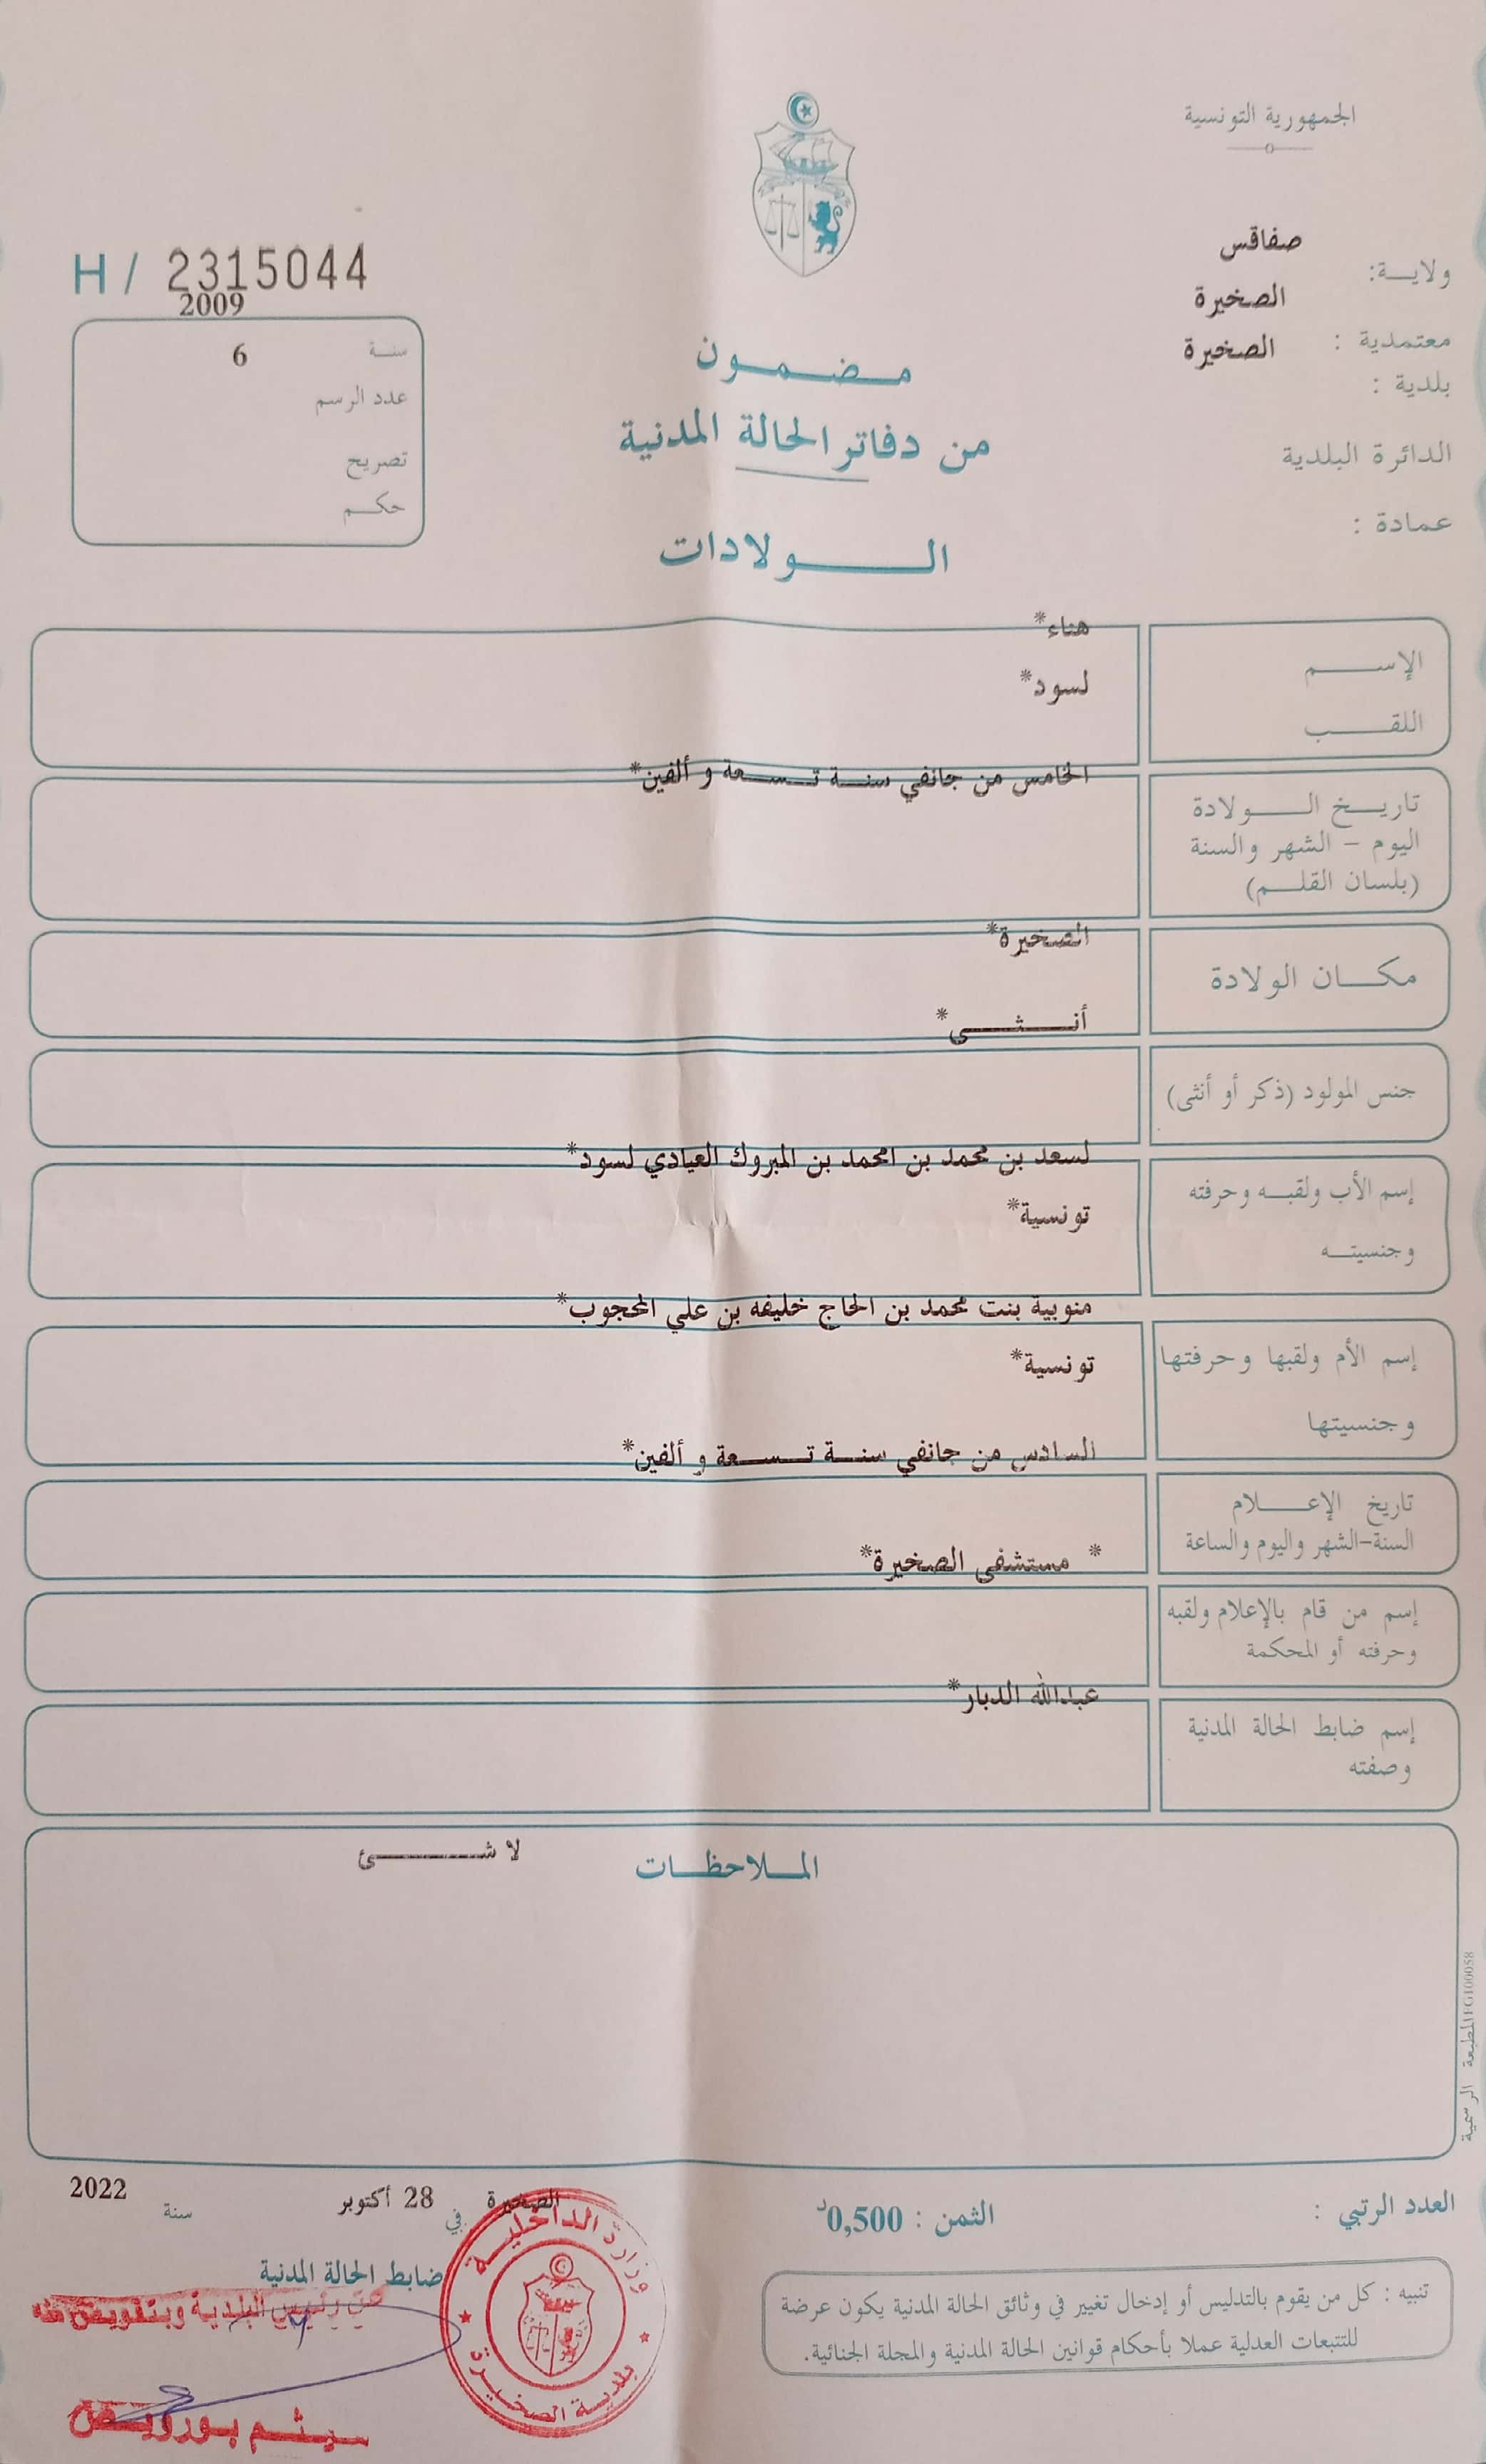 الجمهورية التونسية
ولايــة: صفاقس
معتمدية : الصخيرة
بلدية : الصخيرة
الدائرة البلدية
عمادة :
H / 2315044
2009
سنـة 6
عدد الرسم
تصريح
حكـم
مـضـمـون
من دفاتر الحالة المدنية
الـولادات
الإســم هناء*
اللقـب لسود*
تاريـخ الـولادة الخامس من جانفي سنـة تـسـعة و ألفين*
اليوم - الشهر والسنة
(بلسان القلـم)
مكـان الولادة الصخيرة*
جنس المولود (ذكر أو أنثى) أنـثـى*
إسم الأب ولقبـه وحرفته لسعد بن محمد بن امحمد بن المبروك العيادي لسود*
وجنسيتـه تونسية*
إسم الأم ولقبها وحرفتها منوبية بنت محمد بن الحاج خليفه بن علي المحجوب*
وجنسيتها تونسية*
تاريخ الإعـلام السادس من جانفي سنـة تـسـعة و ألفين*
السنة-الشهر واليوم والساعة
إسم من قام بالإعلام ولقبه * مستشفى الصخيرة*
وحرفته أو المحكمة
إسم ضابط الحالة المدنية عبدالله الدبار*
وصفته
الملاحظـات لا شـئ
المطبعة الرسمية
العدد الرتبي :
الثمن : 0,500د
الصخيرة في 28 أكتوبر سنة 2022
ضابط الحالة المدنية
عن رئيس البلدية وبتفويض منه
وزارة الداخليـة
بلدية الصخيرة
تنبيه : كل من يقوم بالتدليس أو إدخال تغيير في وثائق الحالة المدنية يكون عرضة
للتتبعات العدلية عملا بأحكام قوانين الحالة المدنية والمجلة الجنائية.